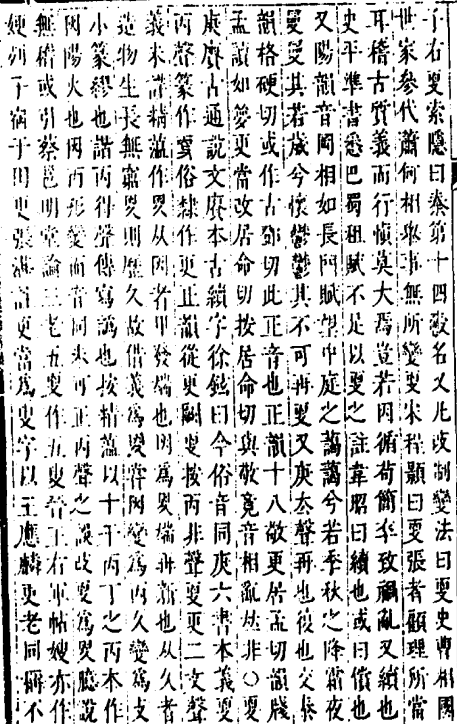 子右㪅索隱曰秦第十四爵名又凡改制變法曰㪅史曹相國
世家參代蕭何相舉事無所變㪅宋程顥曰㪅張者顧理所當
耳稽古質義而行慎莫大焉豈若因循苟簡卒致禍亂又續也
史平準書悉巴蜀租賦不足以㪅之註韋昭曰續也或曰償也
又陽韻音岡相如長門賦望中庭之藹藹兮若季秋之降霜夜
曼曼其若歲兮懷鬱鬱其不可再㪅又庚去聲再也復也交長
韻格硬切或作古鄧切此正音也正韻十八敬更居孟切韻牋
孟讀如夢更當改居命切按居命切與敬竟音相亂𠀤非○㪅
庚賡古通說文賡本古續字徐鉉曰今俗音同庚六書本義㪅
丙聲篆作㪅俗隸作更正韻從更闕㪅按丙非聲㪅更二文聲
義未詳精薀作㪅从丙者甲發端也丙爲㪅端再新也从久者
造物生長無窮㪅則歷久故借義爲㪅舊丙變爲丙久變爲支
小篆繆也諧丙得聲傳寫譌也按精薀以十干丙丁之丙本作
㓁陽火也㓁丙形變而音同未可正丙聲之誤攺㪅爲㪅臆說
無稽或引蔡邕明堂論三老五㪅作五叟晉王右軍帖嫂亦作
㛐列子宿于田更張湛註更當爲叟字以王應麟更老同稱不